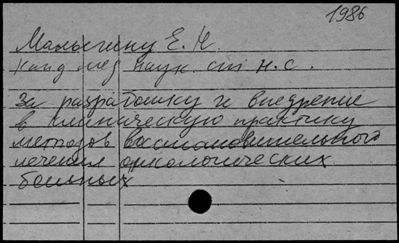 1986
Малыгину Е. Н.
канд мед наук. ст н. с.
за разработку и внедрение
в клиническую практику
методов восстановительного
лечения онкологических
больных